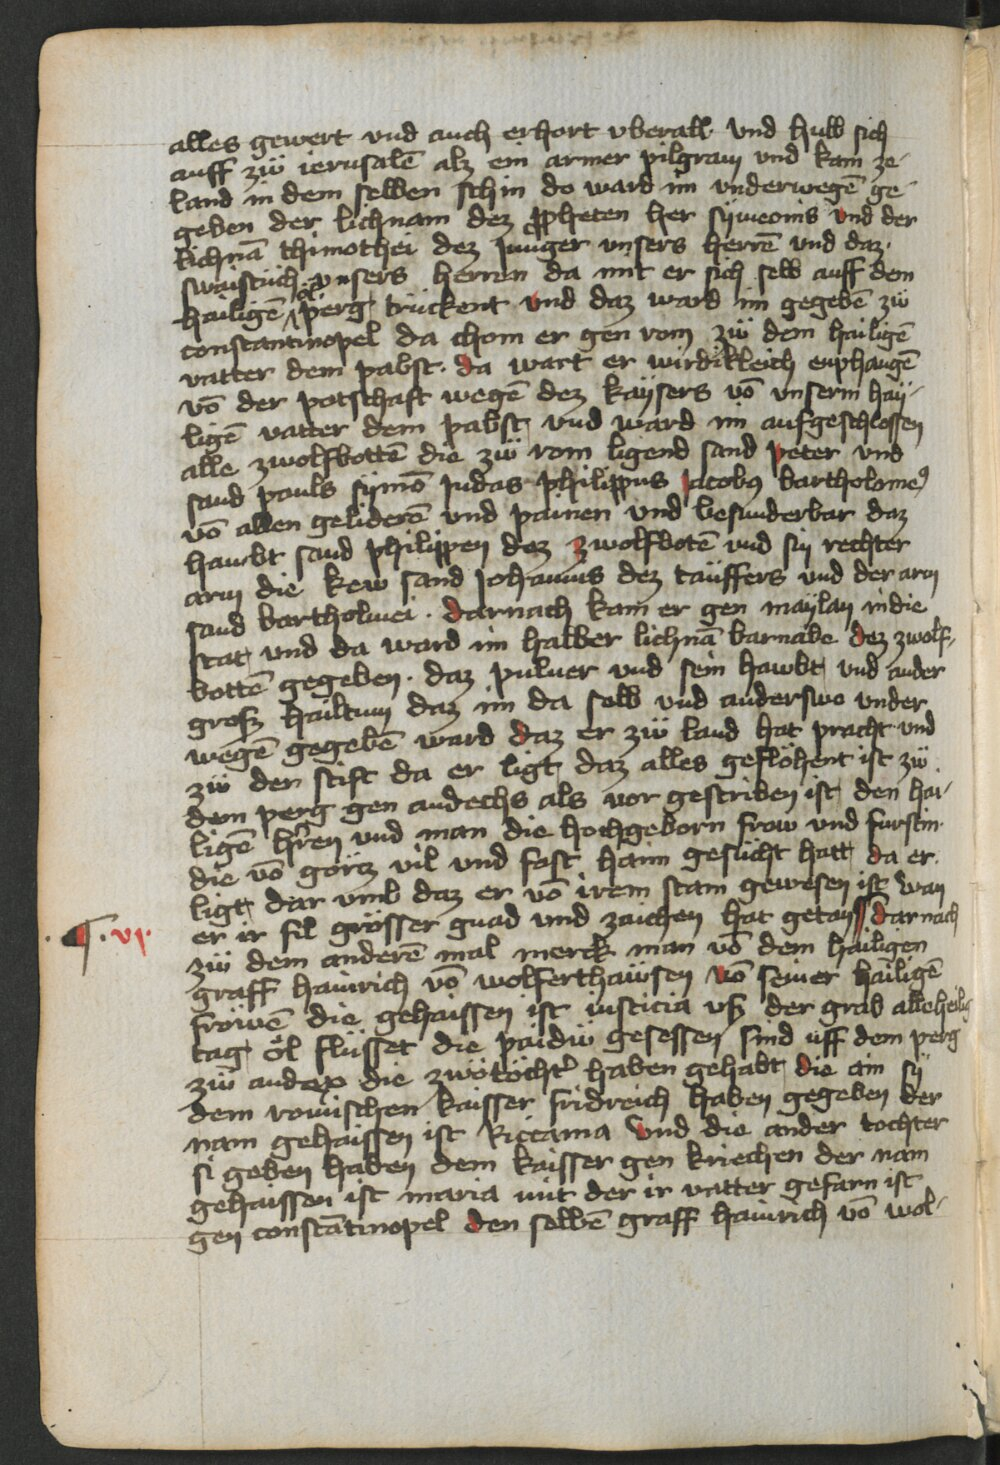 alles gewert vnd auch erhort vberall. vnd hůb sich
auff zů ierusalē alz ein armer pilgram vnd kam ze-
land in dem selben schin do ward im vnderwegē ge-
geben der lichnam dez ꝓpheten her sÿmeonis vnd der
lichnā thimothei dez junger vnsers herrē vnd daz
swaistůch vnsers herren da mit er sich selb auff dem
hailigē öl perg trückent vnd daz ward im gegebē zů
constantinopel da chom er gen rom zů dem hailigē
vatter dem pabst. da wart er wirdikleich enphangē
vō der potschaft wegē dez kaÿsers vō vnserm haÿ-
ligē vatter dem pabst vnd ward im aufgeschlossen
alle zwolfbottē die zů rom ligend sand peter vnd
sand pauls sÿmō judas philippus jacobꝰ bartholomeꝰ
vō allen geliderē vnd painen vnd besunderbar daz
hawbt sand philippen dez zwolfbotē vnd sin rechter
arm die kew sand johannis dez tauffers vnd der arm
sand bartholmei. darnach kam er gen maÿlan in die
stat vnd da ward im halber lichnā barnabe dez zwolf-
bottē gegeben. daz puluer vnd sein hawbt vnd ander
grosz hailtum daz im da selb vnd anderswo vnder
wegē gegebē ward daz er zů land hat pracht vnd
zů der stift da er ligt daz alles geflöhent ist zů
dem perg gen andechs als vor gescriben ist den hai-
ligē hren vnd man die hochgeborn frow vnd furstin
die vō görtz vil vnd fast haim gesůcht hatt da er
ligt dar vmb daz er vō irem stam gewesen ist wan
er ir fil grösser gnad vnd zaichen hat getan ¶ dar nach
¶ . vi.
zů dem anderē mal merck man vō dem hailigen
graff hainrich vō wolferthawsen vō seiner hailigē
fröwē die gehaissen ist iusticia vsz der grab alle heilig
tag öl flüsset die paidů gesessen sind uff dem perg
zů andex die zwötöcht' haben gehabt die ain sÿ
dem romischen kaisser fridreich haben gegeben der
nam gehaissen ist Riccarna vnd die ander tochter
si geben haben dem kaisser gen kriechen der nam
gehaissen ist maria mit der ir vatter gefarn ist
gen constātinopel den selbē graff hainrich vō wol-